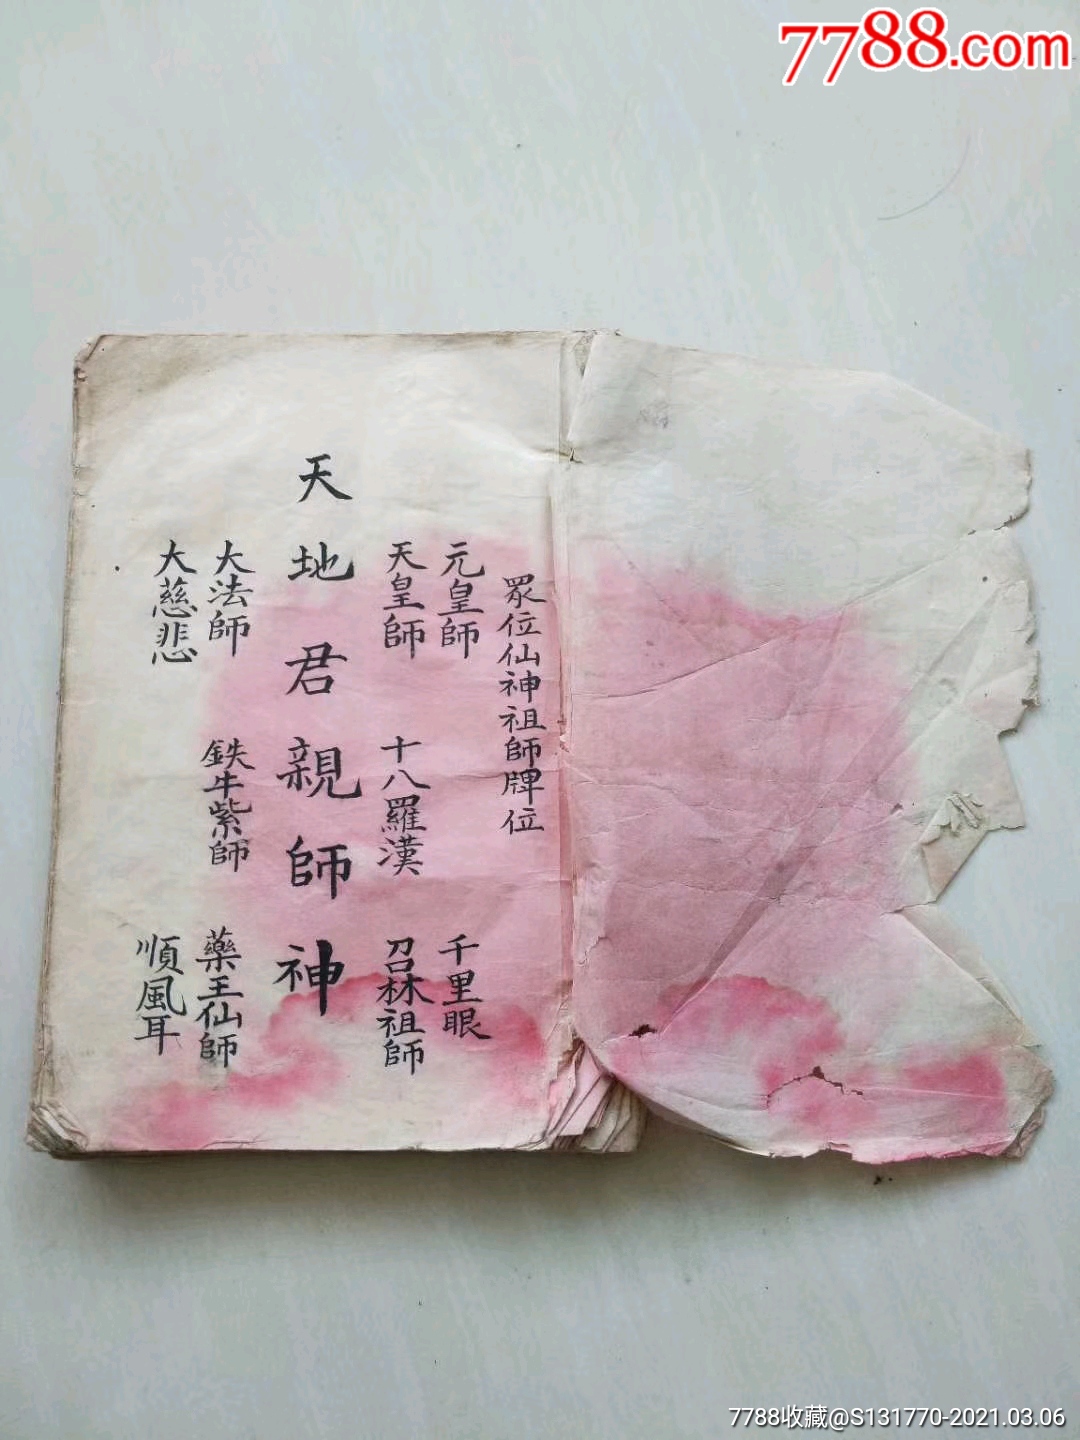 7788.com
眾位仙神祖師牌位
元皇師 千里眼
天皇師 十八羅漢 召林祖師
天地君親師神
大法師 鉄牛紫師 藥王仙師
大慈悲 順風耳
7788收藏@S131770-2021.03.06